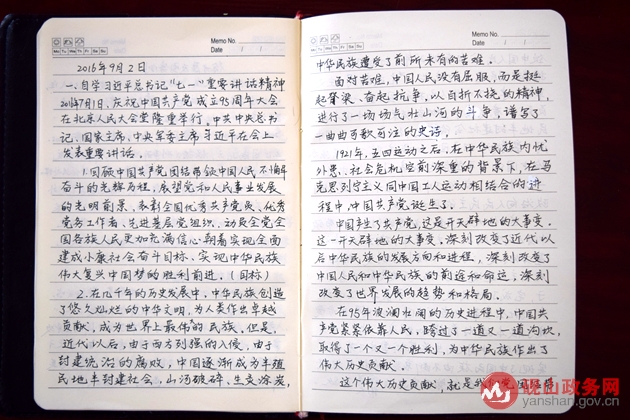 Memo No.
Date / /
Mo Tu We Th Fr Sa Su
2016年9月2日
一.自学习近平总书记"七一"重要讲话精神
2016年7月1日,庆祝中国共产党成立95周年大会
在北京人民大会堂隆重举行,中共中央总书
记、国家主席、中央军委主席习近平在会上
发表重要讲话。
1.回顾中国共产党团结带领中国人民不懈
奋斗的光辉历程,展望党和人民事业发展
的光明前景,表彰全国优秀共产党员、优秀
党务工作者、先进基层党组织,动员全党全
国各族人民更加充满信心朝着实现全面
建成小康社会奋斗目标、实现中华民族
伟大复兴中国梦的胜利前进。(国标)
2.在几千年的历史发展中,中华民族创造
了悠久灿烂的中华文明,为人类作出卓越
贡献,成为世界上最伟的民族,但是,
近代以后,由于西方列强的入侵,由于
封建统治的腐败,中国逐渐成为半殖
民地半封建社会,山河破碎,生灵涂炭,
Memo No.
Date / /
Mo Tu We Th Fr Sa Su
中华民族遭受了前所未有的苦难。
面对苦难,中国人民没有屈服,而是挺
起脊梁、奋起抗争,以百折不挠的精神,
进行了一场场气壮山河的斗争,谱写了
一曲曲可歌可泣的史诗。
1921年,五四运动之后,在中华民族内忧
外患、社会危机空前深重的背景下,在马
克思列宁主义同中国工人运动相结合的进
程中,中国共产党诞生了。
中国产生了共产党,这是开天辟地的大事变。
这一开天辟地的大事变,深刻改变了近代以
后中华民族的发展方向和进程,深刻改变了
中国人民和中华民族的前途和命运,深刻
改变了世界发展的趋势和格局。
在95年波澜壮阔的历史进程中,中国共
产党紧紧依靠人民,跨过了一道又一道沟坎,
取得了一个又一个胜利,为中华民族作出了
伟大历史贡献。
这个伟大历史贡献,就是我们党团结带
砚山政务网
yanshan.gov.cn